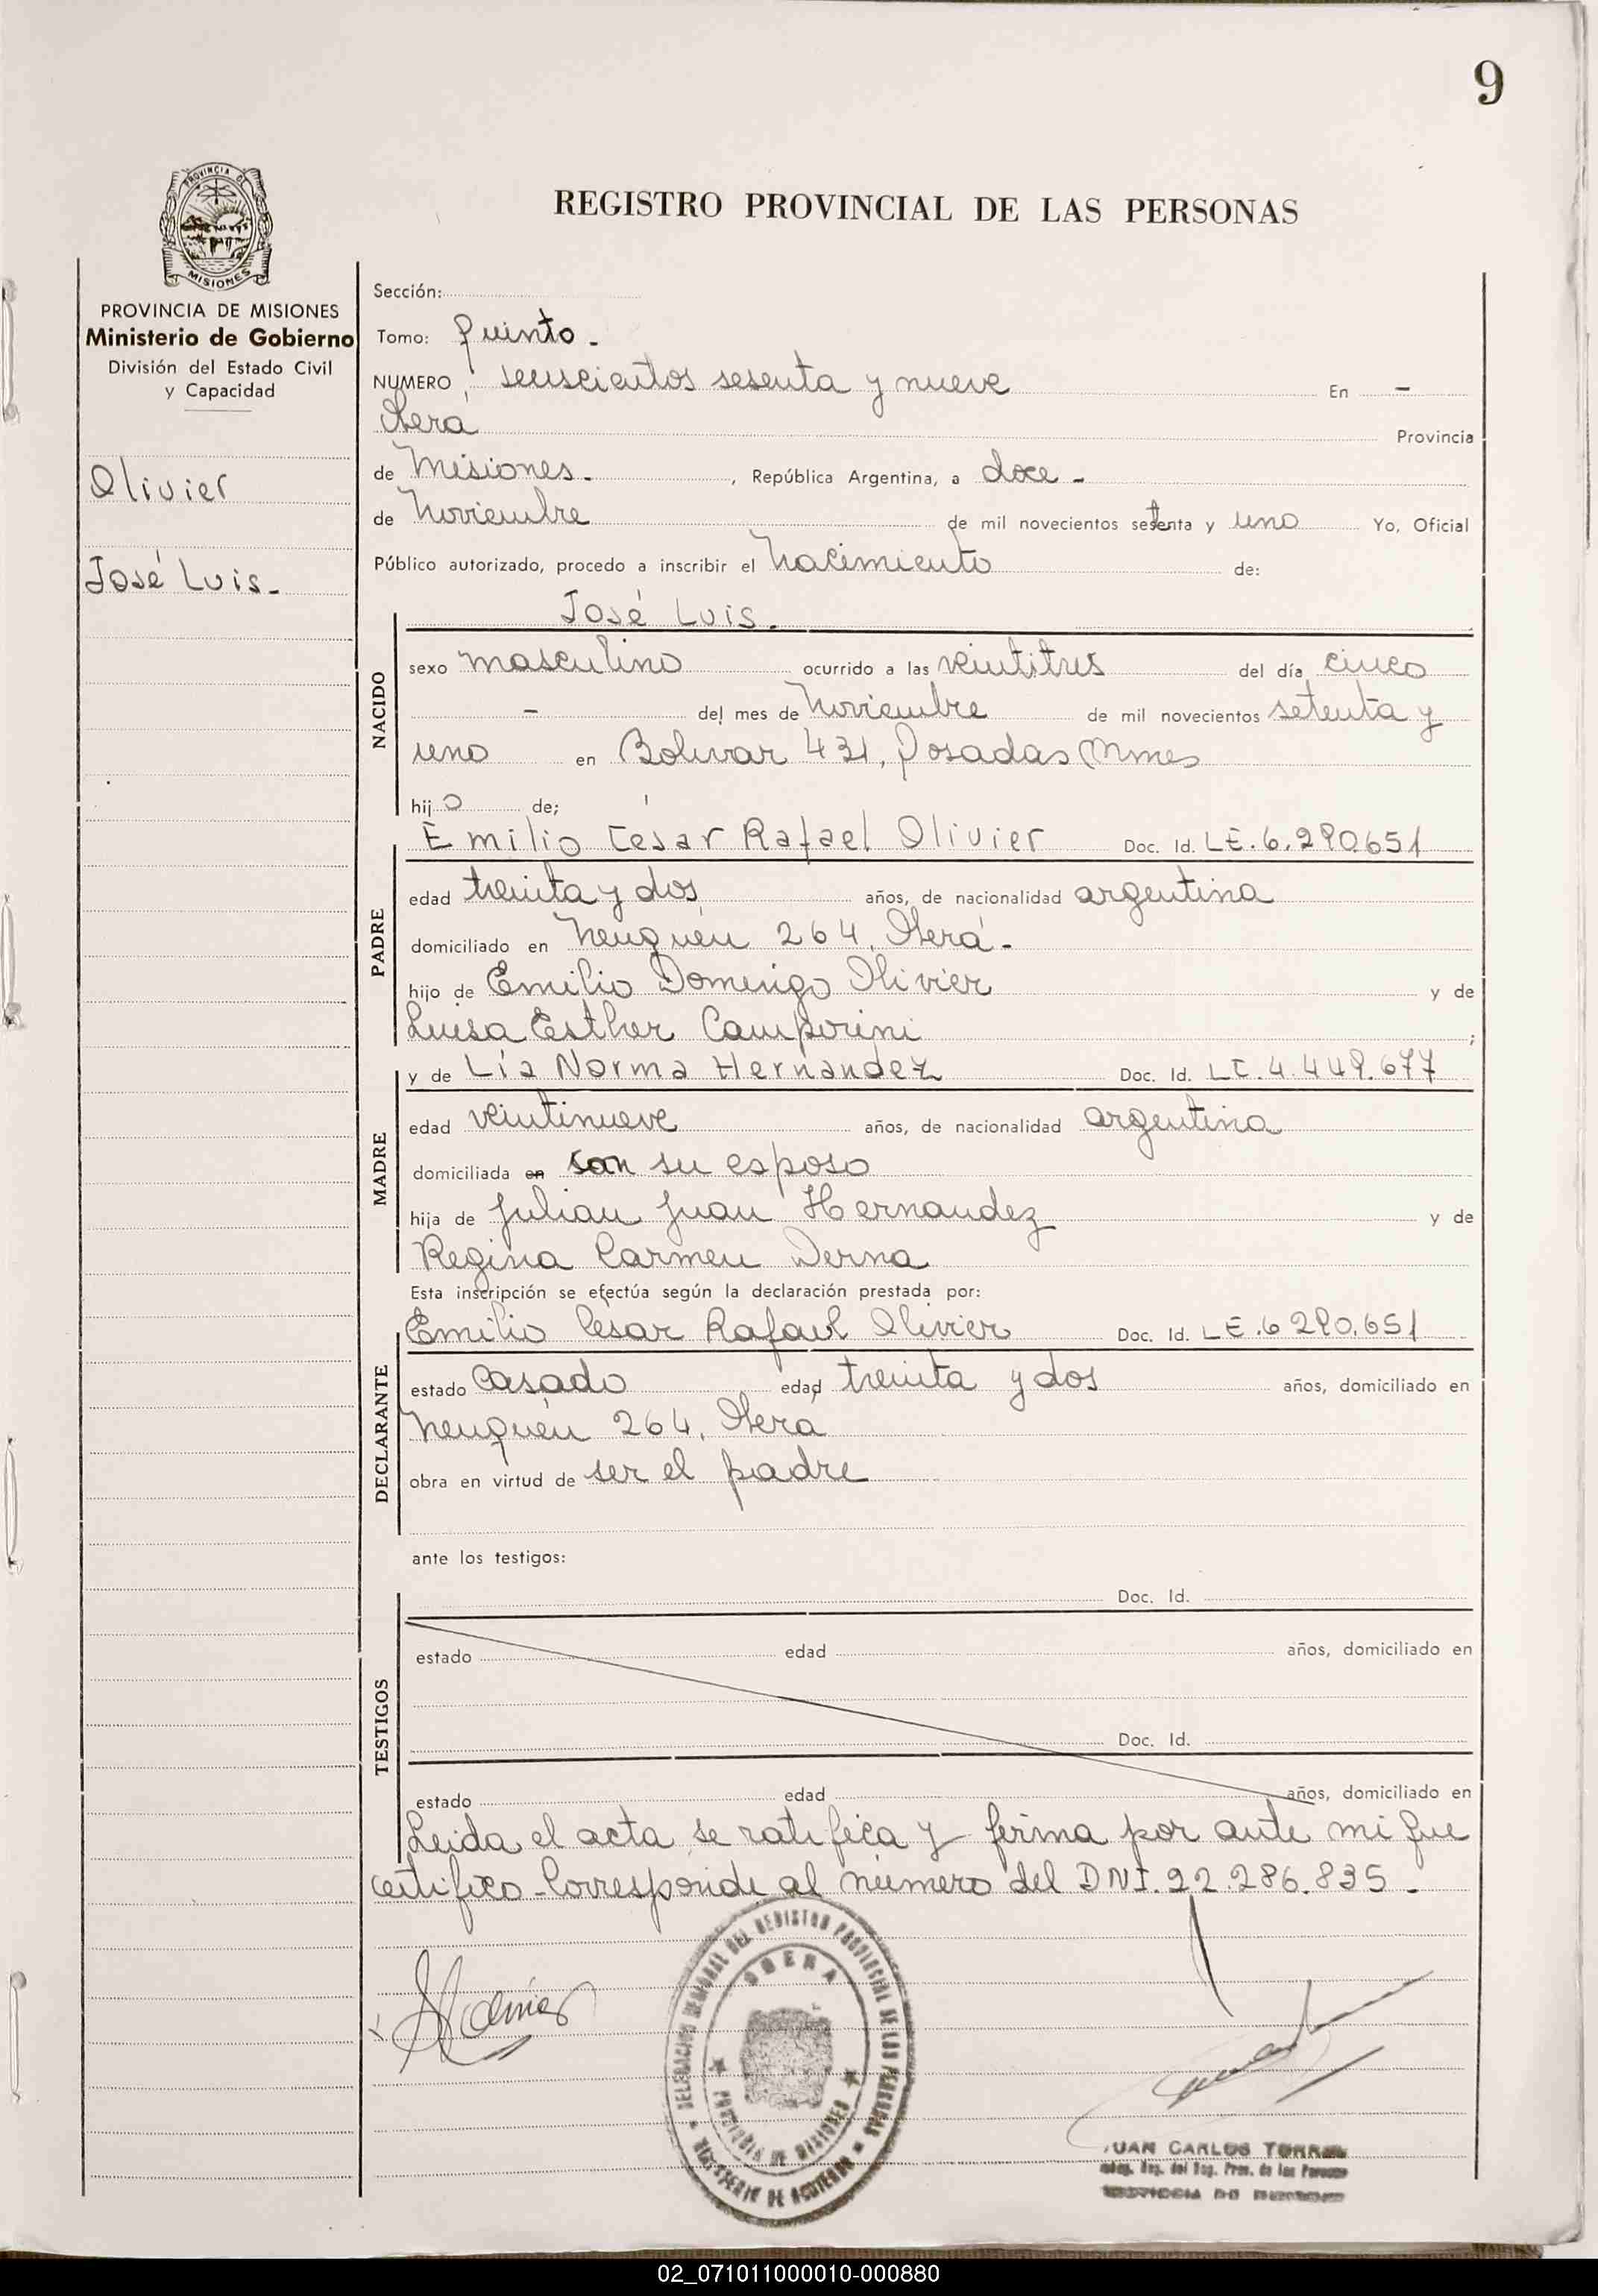 9
PROVINCIA DE
MISIONES
REGISTRO PROVINCIAL DE LAS PERSONAS
PROVINCIA DE MISIONES
Ministerio de Gobierno
División del Estado Civil
y Capacidad
Olivier
José Luis.-
Sección:
Tomo: Quinto.-
NUMERO seiscientos sesenta y nueve En -
Oberá Provincia
de Misiones.-, República Argentina, a doce.-
de Noviembre de mil novecientos setenta y uno Yo, Oficial
Público autorizado, procedo a inscribir el Nacimiento de:
José Luis.
NACIDO
sexo masculino ocurrido a las veintitres del día cinco
- del mes de Noviembre de mil novecientos setenta y
uno en Bolivar 431, Posadas Mnes
hijo de;
Emilio César Rafael Olivier Doc. Id. LE.6.290.651
PADRE
edad treinta y dos años, de nacionalidad argentina
domiciliado en Neuquén 264, Oberá.-
hijo de Emilio Domingo Olivier y de
Luisa Esther Camporini ;
y de Lía Norma Hernández Doc. Id. LC.4.449.677
MADRE
edad veintinueve años, de nacionalidad argentina
domiciliada en con su esposo
hija de Julian Juan Hernandez y de
Regina Carmen Derna
Esta inscripción se efectúa según la declaración prestada por:
Emilio César Rafael Olivier Doc. Id. LE.6 290.651
DECLARANTE
estado Casado edad treinta y dos años, domiciliado en
Neuquén 264, Oberá
obra en virtud de ser el padre
ante los testigos:
Doc. Id.
TESTIGOS
estado edad años, domiciliado en
Doc. Id.
estado edad años, domiciliado en
Leida el acta, se ratifica y firma por ante mi que
certifico-Corresponde al número del DNI.22.286.835.-
DELEGACION REGIONAL DEL REGISTRO PROVINCIAL DE LAS PERSONAS
OBERA
PROVINCIA DE MISIONES
MINISTERIO DE GOBIERNO
JUAN CARLOS TORRES
Reg. del Reg. Prov. de las Personas
PROVINCIA DE MISIONES
02_071011000010-000880